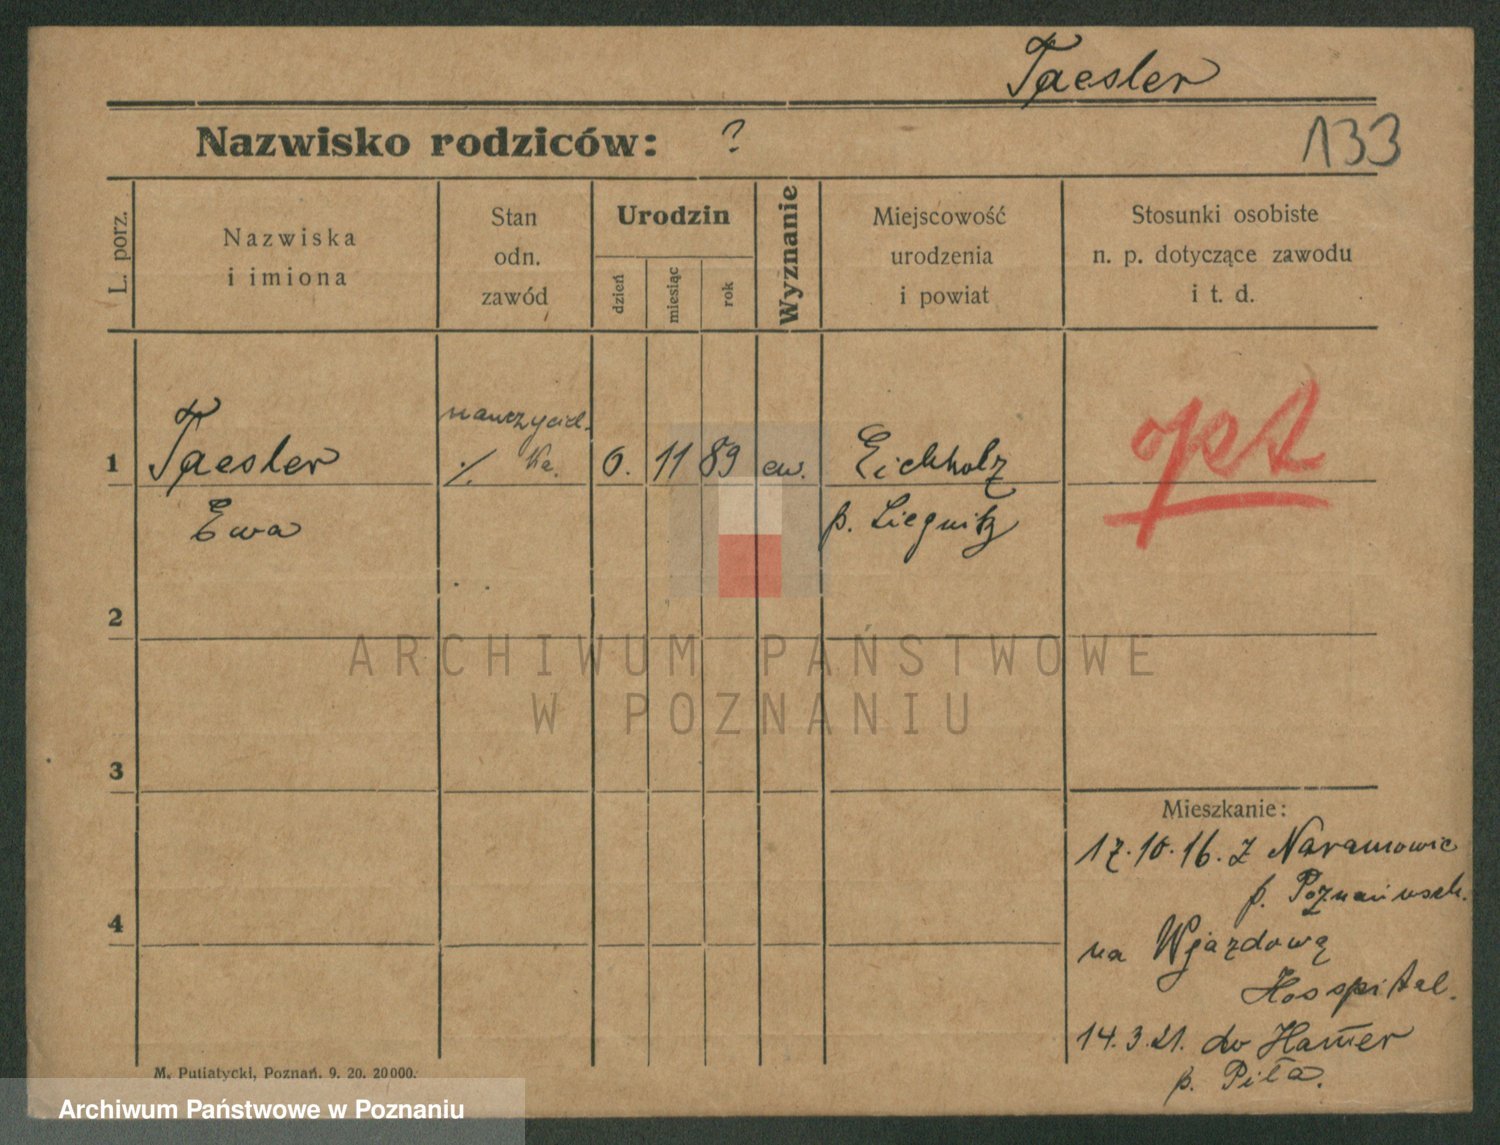 Taesler
Nazwisko rodziców: ?
133
L. porz.
Nazwiska
i imiona
Stan
odn.
zawód
Urodzin
dzień
miesiąc
rok
Wyznanie
Miejscowość
urodzenia
i powiat
Stosunki osobiste
n. p. dotyczące zawodu
i t. d.
1
Taesler
Ewa
nauczyciel.
ka.
6. 11 89 ew.
Eichholz
p. Liegnitz
opt
2
3
4
ARCHIWUM PAŃSTWOWE
W POZNANIU
Mieszkanie:
17.10.16. z Naramowic
p. Poznań wsch.
na Wjazdową
Hosspital.
14.3.21. do Ham̄er
p. Piła.
M. Putiatycki, Poznań. 9. 20. 20000.
Archiwum Państwowe w Poznaniu